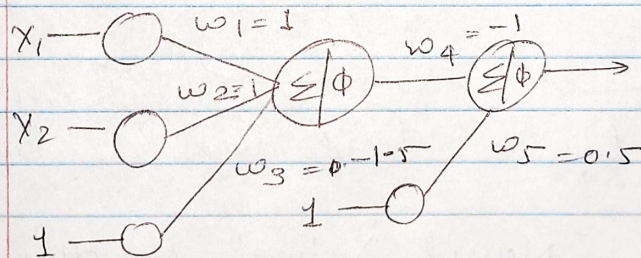 x₁ w₁ = 1 w₄ = -1
Σ/Φ Σ/Φ
w₂=1
x₂
w₃ = -1.5 w₅ = 0.5
1
1